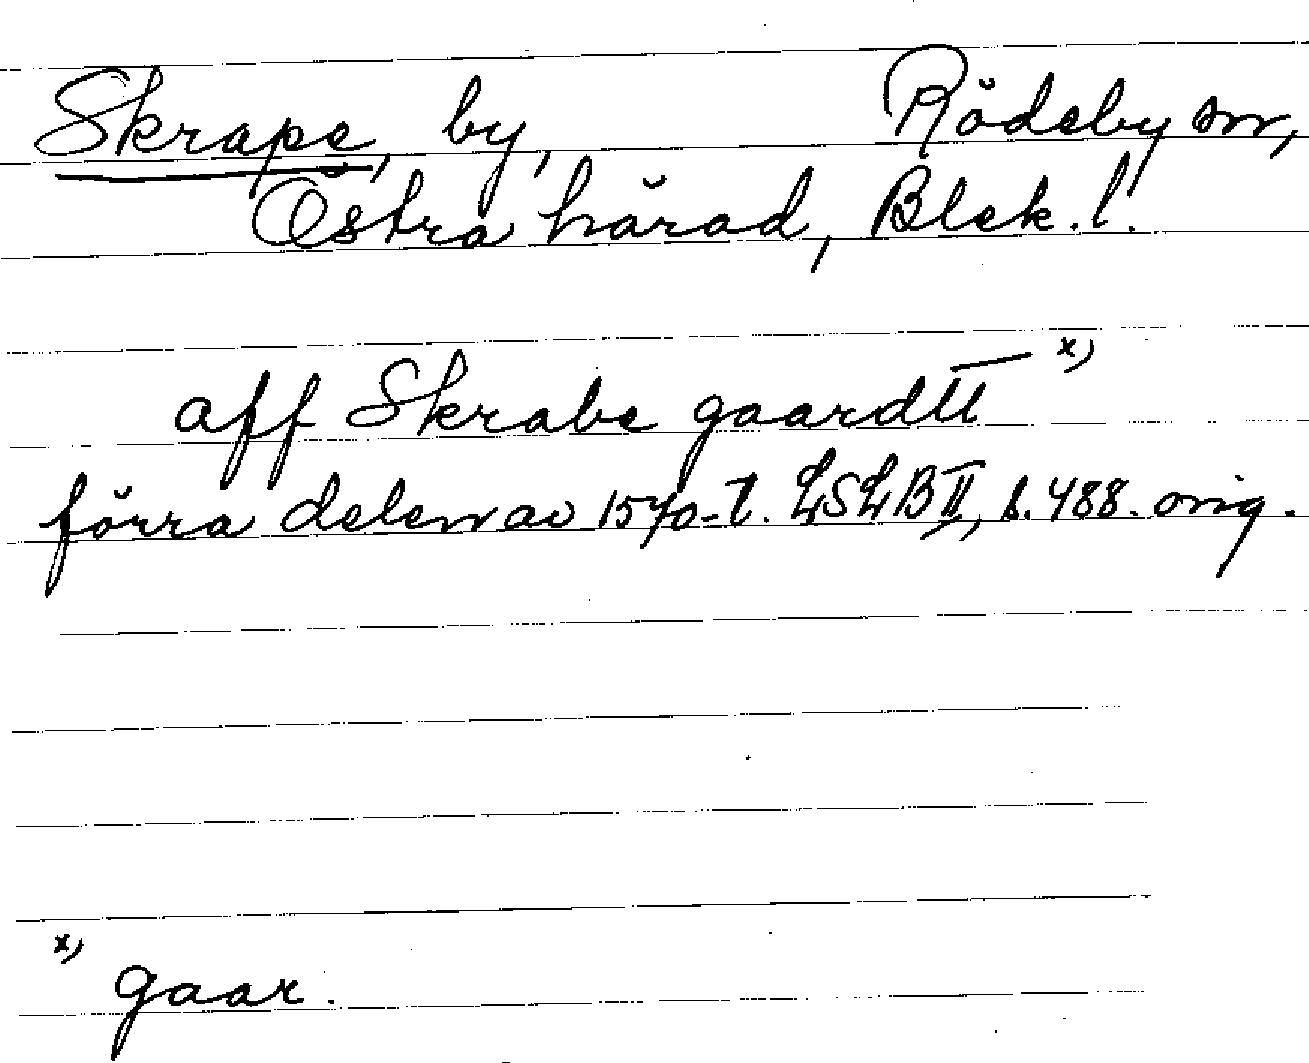 Skrape, by, Rödeby sn,
Östra härad, Blek. l.
aff Skrabe gaardtt x)
förra delen av 1570-t. LSLB II, s. 488. orig.
x) gaar.